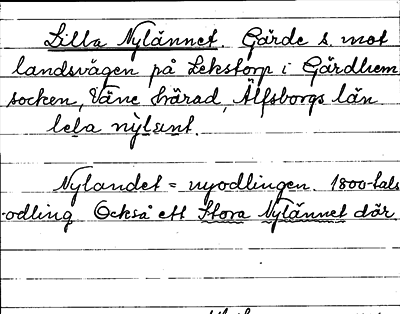 Lilla Nylännet. Gärde s. mot
landsvägen på Lekstorp i Gärdhem
socken, Väne härad, Älfsborgs län
lela nỳlunt.
Nylandet = nyodlingen. 1800-tals
odling Också ett Stora Nylännet där